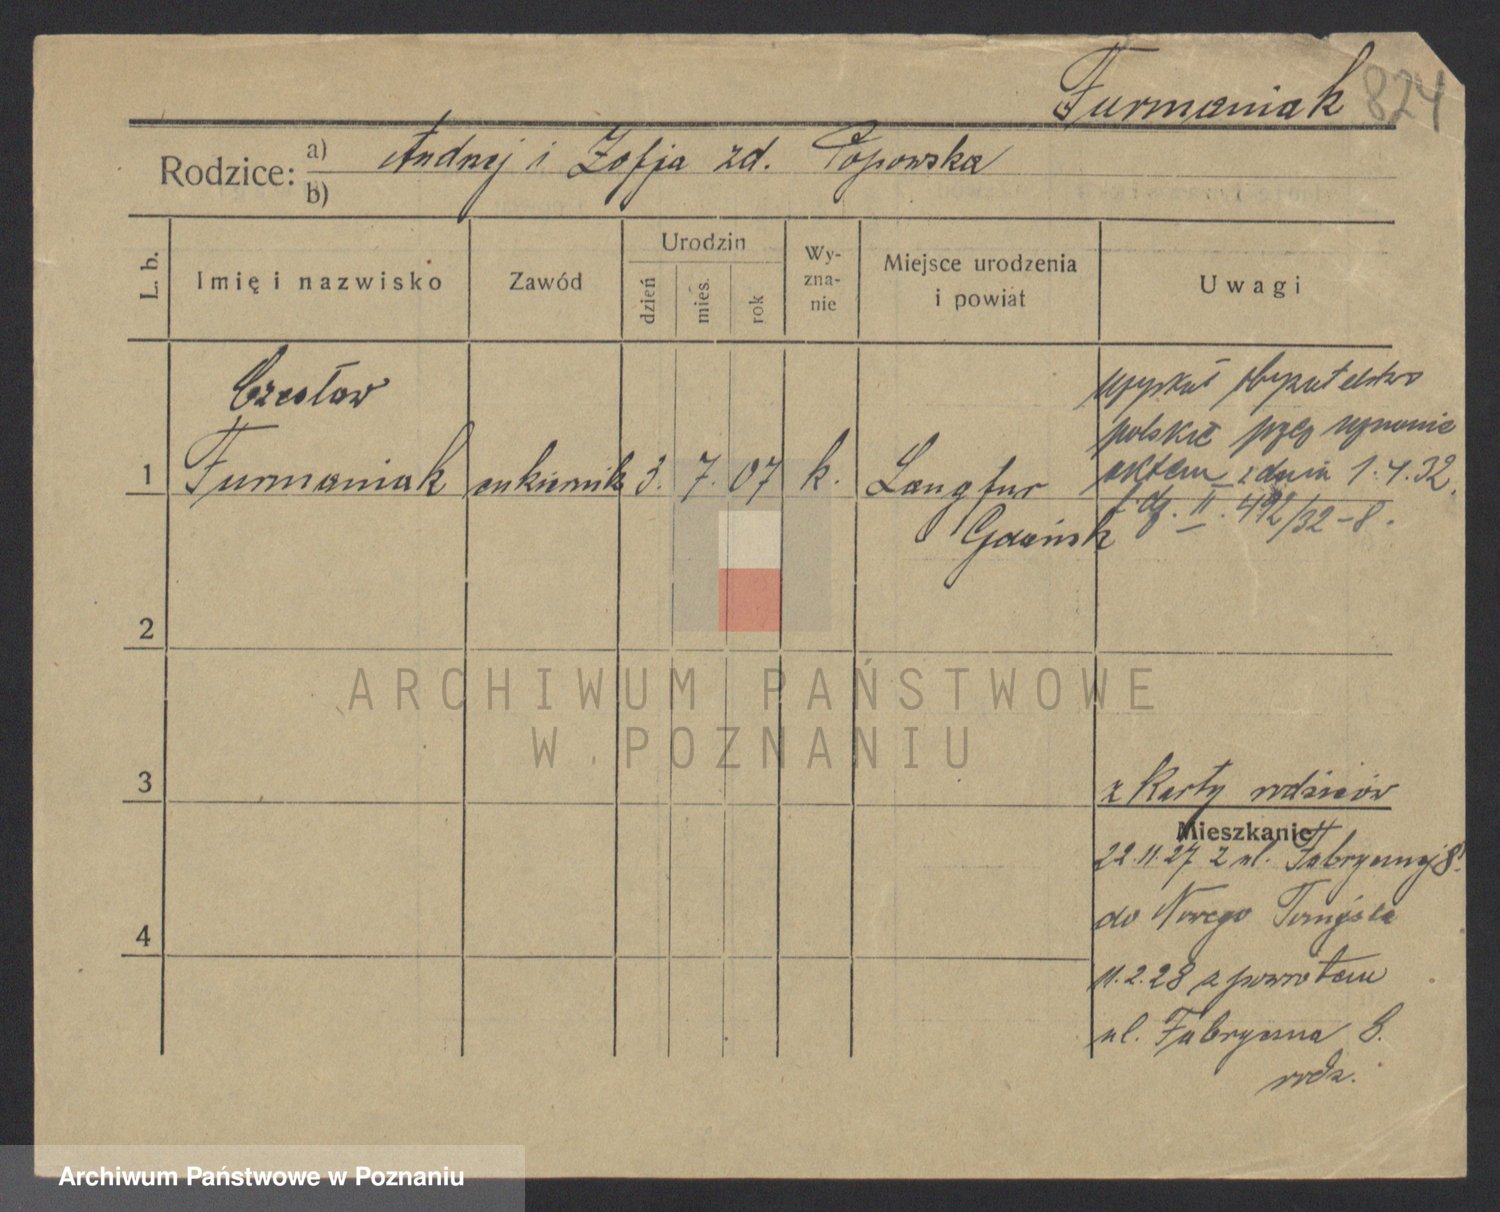 Furmaniak 824
Rodzice: a) Andrzej i Zofja zd. Popowska
b)
L. b.
Imię i nazwisko
Zawód
Urodzin
dzień
mies.
rok
Wy-
zna-
nie
Miejsce urodzenia
i powiat
Uwagi
Czesław
1 Furmaniak cukiernik 3. 7. 07 k. Langfur
Gdańsk
uzyskał obywatelstwo
polskie przez uznanie
aktem z dnia 1.4.32.
l. dz. II. 492/32-8.
2
3
z karty rodziców
Mieszkanie
22.11.27 z ul. Fabrycznej 8
do Nowego Tomyśla
11.2.28 z powrotem
ul. Fabryczna 8.
rodz.
4
ARCHIWUM PAŃSTWOWE
W POZNANIU
Archiwum Państwowe w Poznaniu